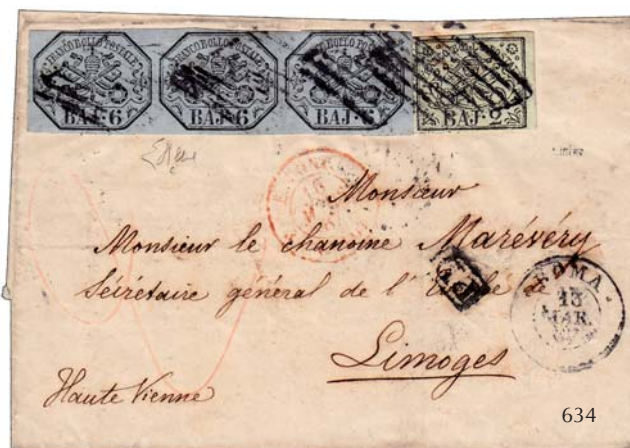 FRANCO BOLLO POSTALE FRANCO BOLLO POSTALE FRANCO BOLLO POSTALE
BAJ:6 BAJ:6 BAJ:6 BAJ:2
Monsieur
Monsieur le chanoine Marévéry
Sécrétaire général de l'
Limoges
Haute Vienne
ROMA
13
MAR.
634